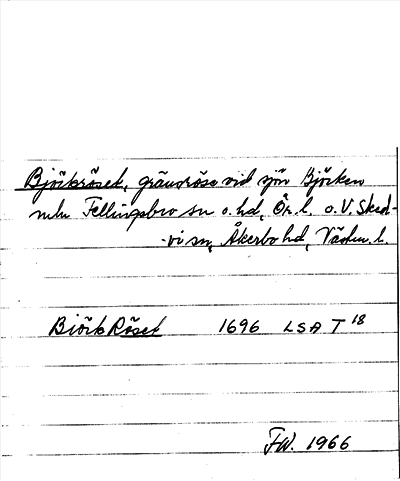 Björkröset, gränsröse vid sjön Björken
mln Fellingsbro sn o. hd, Ör. l. o. V. Sked-
-vi sn, Åkerbo hd, Västm. l.
BiörkRöset 1696 LSA T 18
FW. 1966